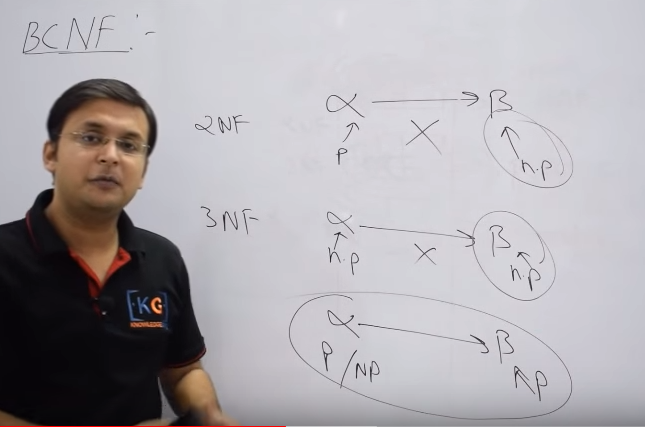 BCNF :-
2NF α → β
P X n.p
3NF α → β
n.p X n.p
α → β
P / NP P
KG
KNOWLEDGE